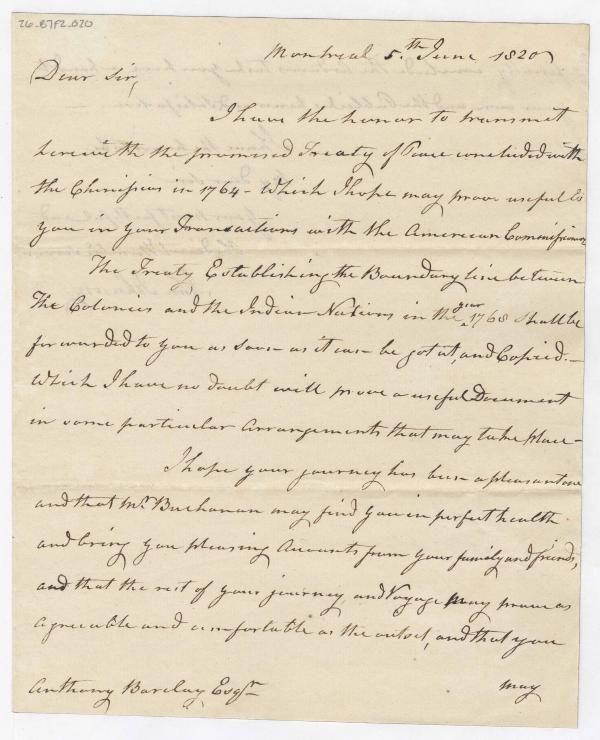 26-B7F2-020
Montreal 5th June 1820
Dear Sir,
I have the honor to transmit
herewith the promised Treaty of Peace concluded with
the Chenissios in 1764 - Which I hope may prove useful to
you in your Transactions with the American Commissioners
The Treaty Establishing the Boundary line between
The Colonies and the Indian Nations in the year 1768 shall be
forwarded to you as soon as it can be got at, and Copied. -
Which I have no doubt will prove a useful Document
in some particular Arrangements that may take place -
I hope your journey has been a pleasant one
and that Mr Buchanan may find you in perfect health
and bring you pleasing Accounts from your family and friends,
and that the rest of your journey and Voyage may prove as
agreeable and comfortable as the outset, and that you
Anthony Barclay Esqr may